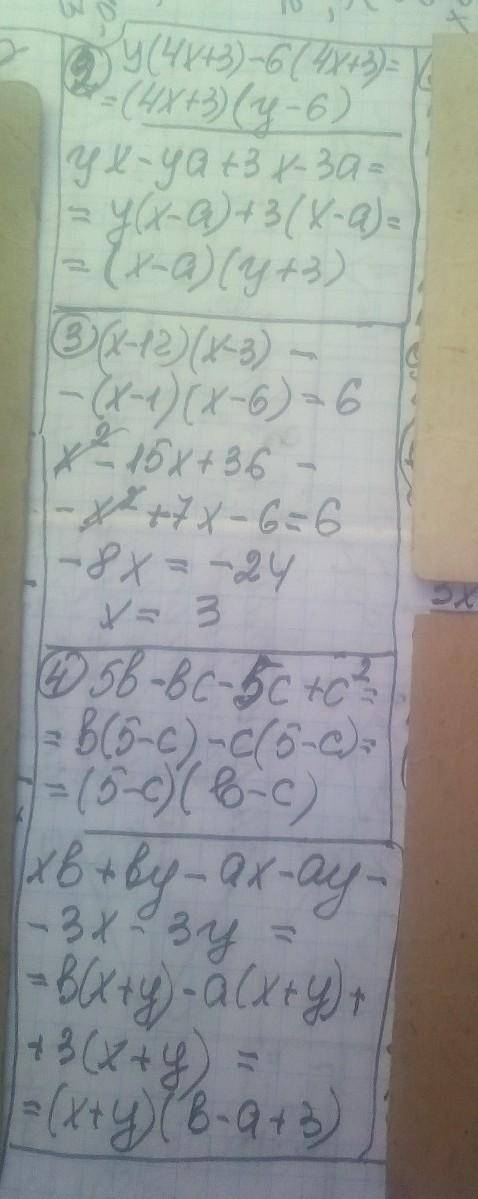 2) y(4x+3)-6(4x+3)=
=(4x+3)(y-6)
yx-ya+3x-3a=
=y(x-a)+3(x-a)=
=(x-a)(y+3)
3) (x-12)(x-3) -
-(x-1)(x-6)=6
x²-15x+36 -
-x²+7x-6=6
-8x = -24
x = 3
4) 5в-вс-5с+с²=
=в(5-с)-с(5-с)=
=(5-с)(в-с)
xв+вy-ax-ay-
-3x-3y =
=в(x+y)-a(x+y)+
+3(x+y) =
=(x+y)(в-a+3)